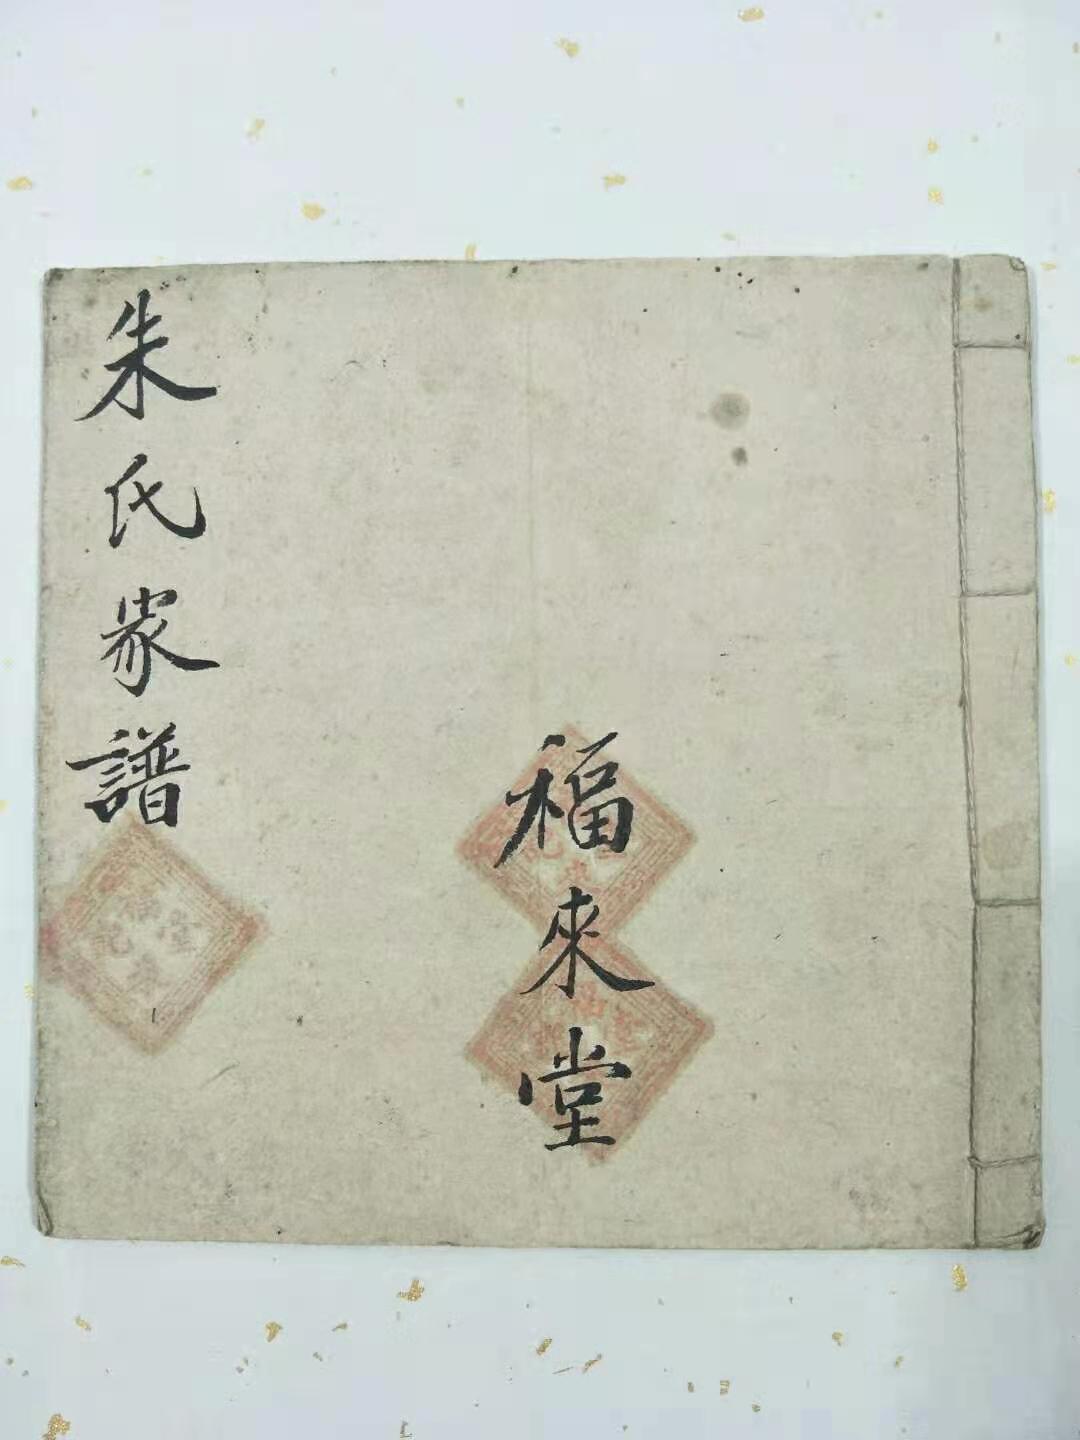 福來堂
朱氏家譜